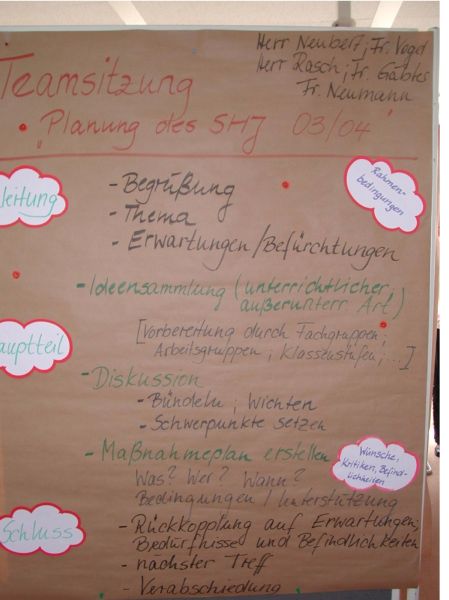 Herr Neubert; Fr. Vogel
Herr Rasch; Fr. Gäbler
Fr. Neumann
Teamsitzung
"Planung des SHJ 03/04"
leitung
- Begrüßung
- Thema
- Erwartungen/Befürchtungen
Rahmen-
bedingungen
- Ideensammlung (unterrichtlicher,
außerunterr. Art)
[Vorbereitung durch Fachgruppen;
Arbeitsgruppen; Klassenstufen;...]
auptteil
- Diskussion
- Bündeln; Wichten
- Schwerpunkte setzen
- Maßnahmeplan erstellen
Was? Wer? Wann?
Bedingungen / Unterstützung
Wünsche,
Kritiken, Befind-
lichkeiten
Schluss
- Rückkopplung auf Erwartungen;
Bedürfnisse und Befindlichkeiten
- nächster Treff
- Verabschiedung